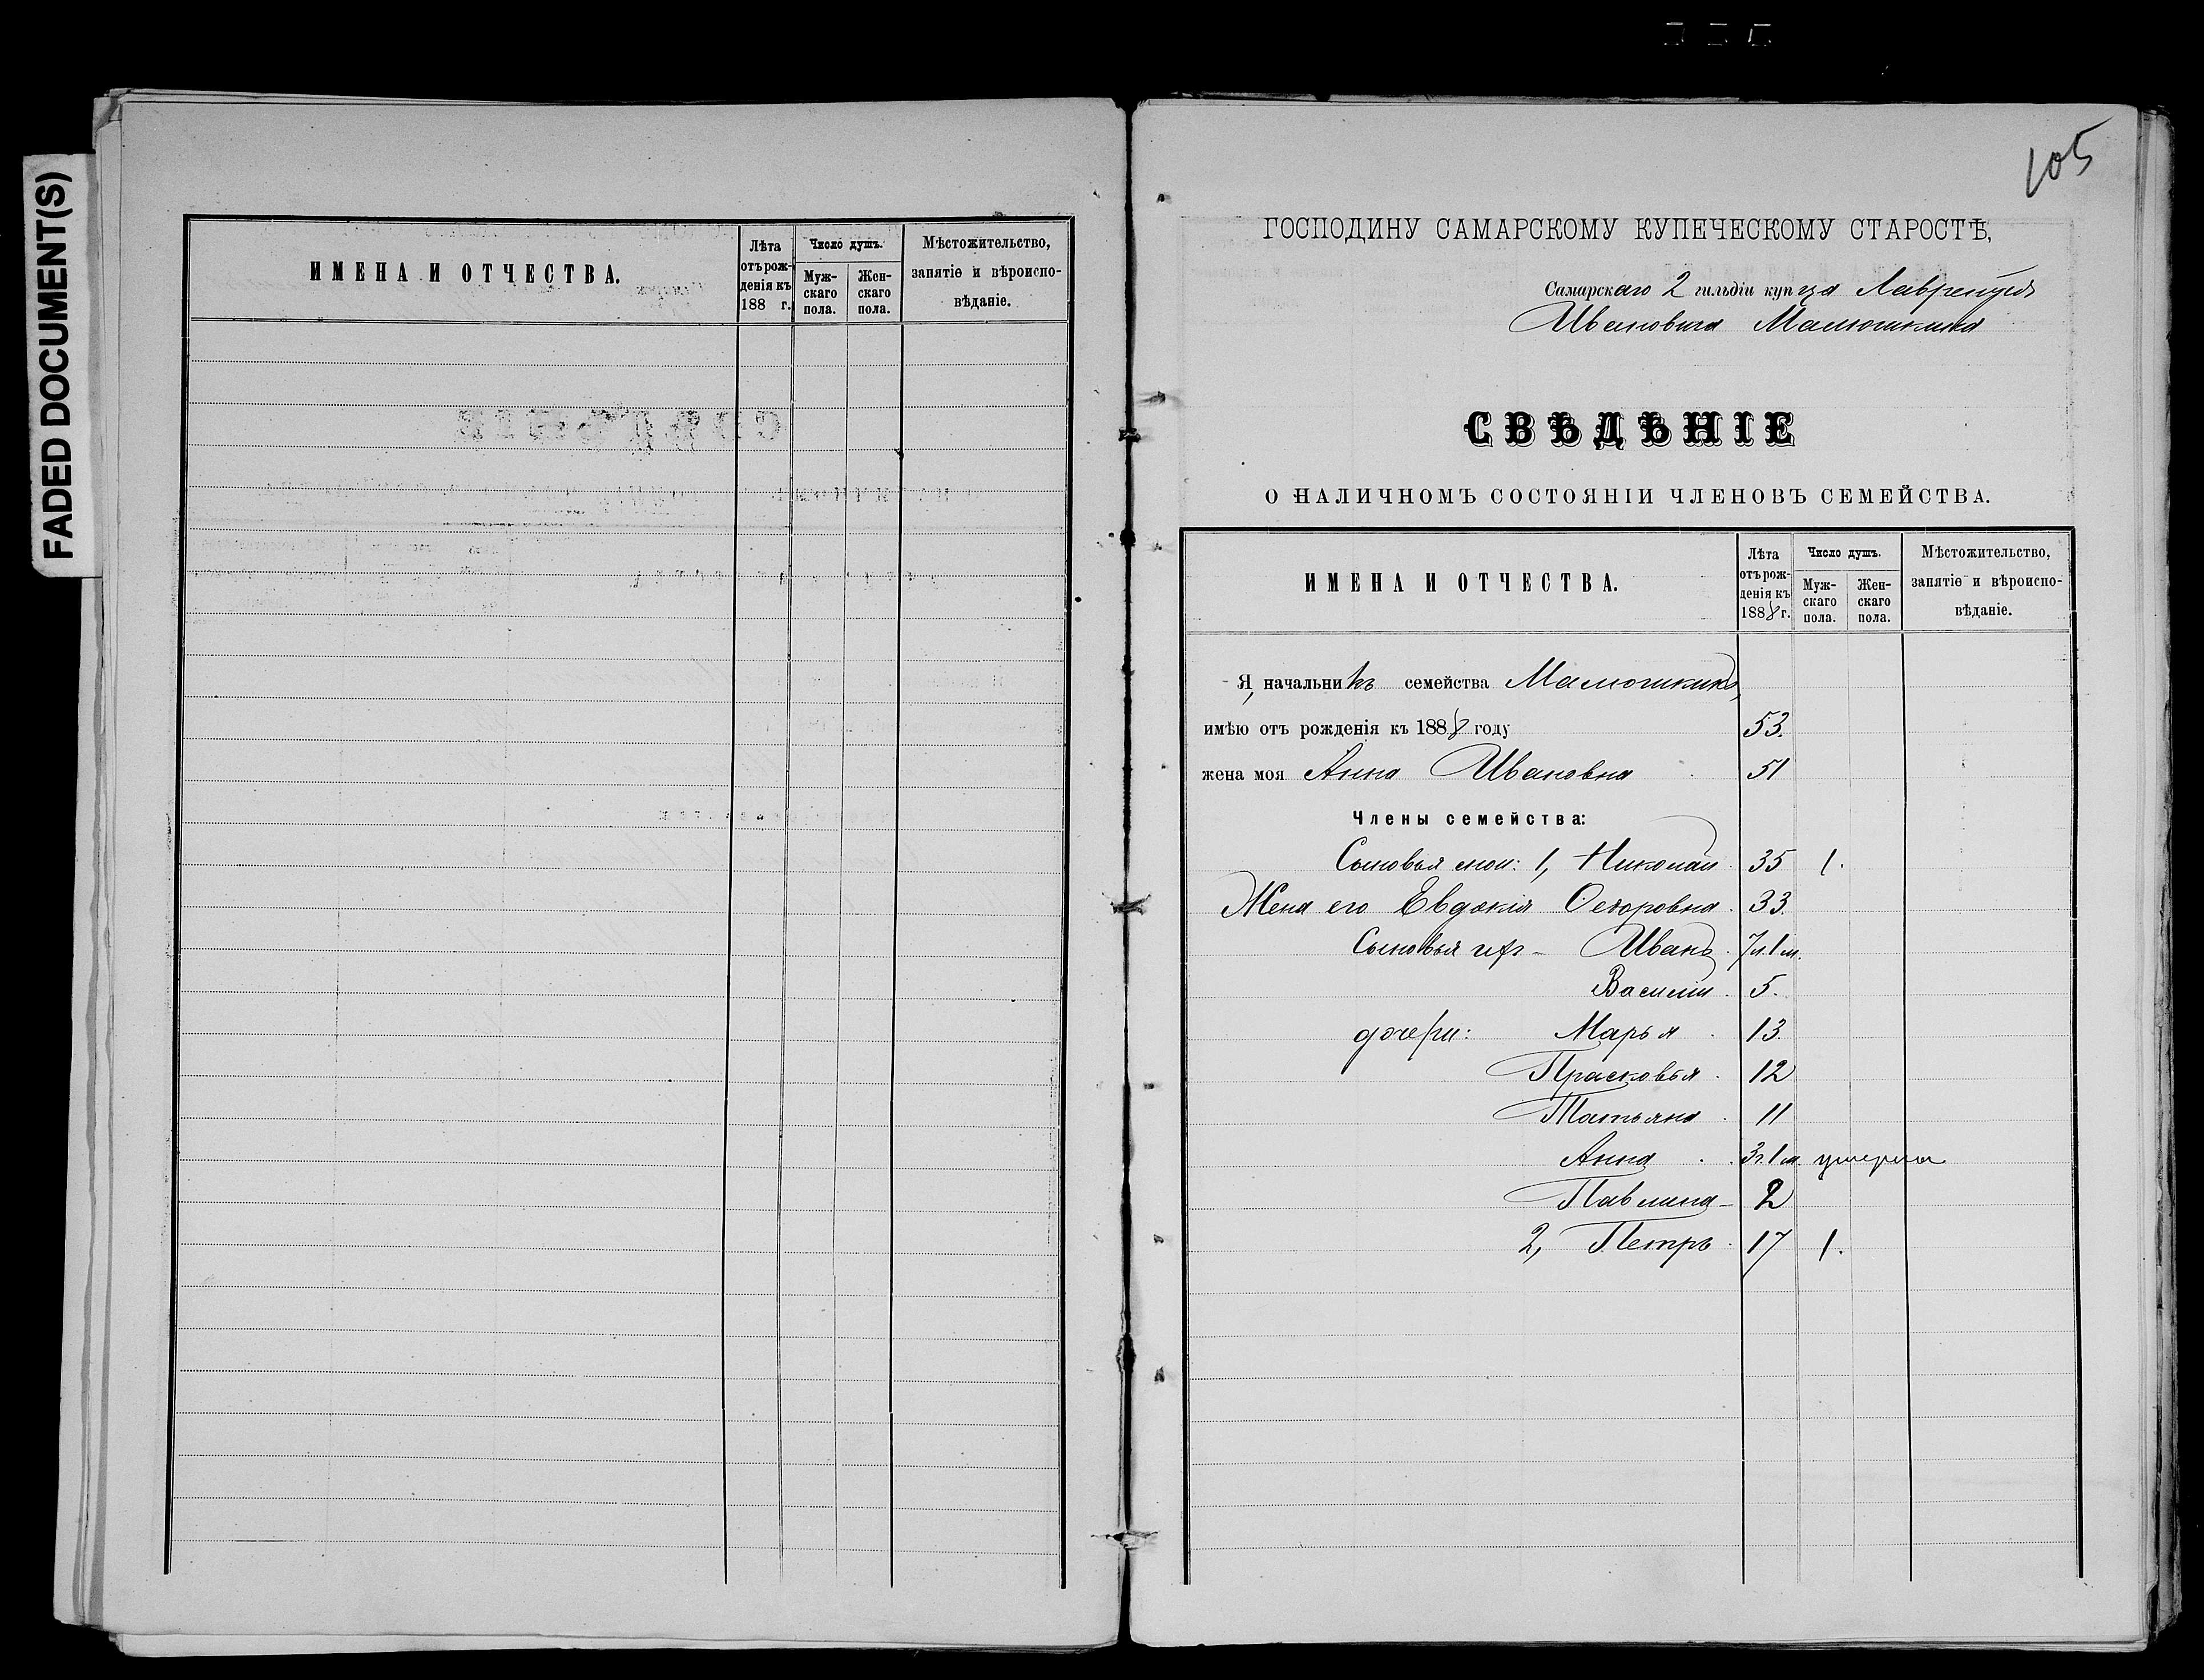 FADED DOCUMENT(S)
ИМЕНА И ОТЧЕСТВА.
Лѣта отъ рожденія къ 188 г.
Число душъ.
Мужскаго пола.
Женскаго пола.
Мѣстожительство, занятіе и вѣроисповѣданіе.
105
ГОСПОДИНУ САМАРСКОМУ КУПЕЧЕСКОМУ СТАРОСТѢ,
Самарскаго 2 гильдіи купца Лаврентія
Ивановича Малюшкина
СВѢДѢНІЕ
О НАЛИЧНОМЪ СОСТОЯНІИ ЧЛЕНОВЪ СЕМЕЙСТВА.
ИМЕНА И ОТЧЕСТВА.
Лѣта отъ рожденія къ 1888 г.
Число душъ.
Мужскаго пола.
Женскаго пола.
Мѣстожительство, занятіе и вѣроисповѣданіе.
Я, начальникъ семейства Малюшкинъ,
имѣю отъ рожденія къ 1888 году 53.
жена моя Анна Ивановна 51
Члены семейства:
Сыновья мои: 1, Николай 35 1.
Жена его Евдокія Ѳедоровна 33.
Сыновья ихъ – Иванъ 7 л. 1 м.
Василій 5.
дочери: Марья 13.
Прасковья 12
Татьяна 11
Анна 3 г. 1 м. умерла
Павлина – 2
2, Петръ 17 1.